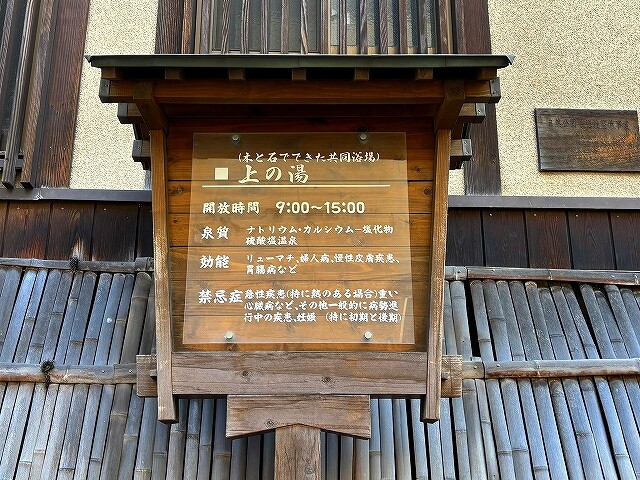 (木と石でできた共同浴場)
■上の湯
開放時間 9:00～15:00
泉質 ナトリウム・カルシウム－塩化物
硫酸塩温泉
効能 リューマチ、婦人病、慢性皮膚疾患、
胃腸病など
禁忌症 急性疾患(特に熱のある場合)重い
心臓病など、その他一般的に病勢進
行中の疾患、妊娠 (特に初期と後期)